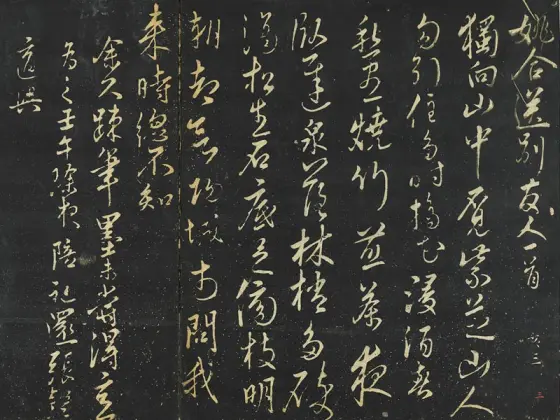 姚合送別友人一首
獨向山中覓紫芝山人
勾引住多時摘花浸酒春
愁盡燒竹煎茶夜
臥遲泉落林梢多碎
滴松生石底足傍枝明
朝却欲歸城市問我
來時總不知
余久疎筆墨
壬午除夜陪祀還張